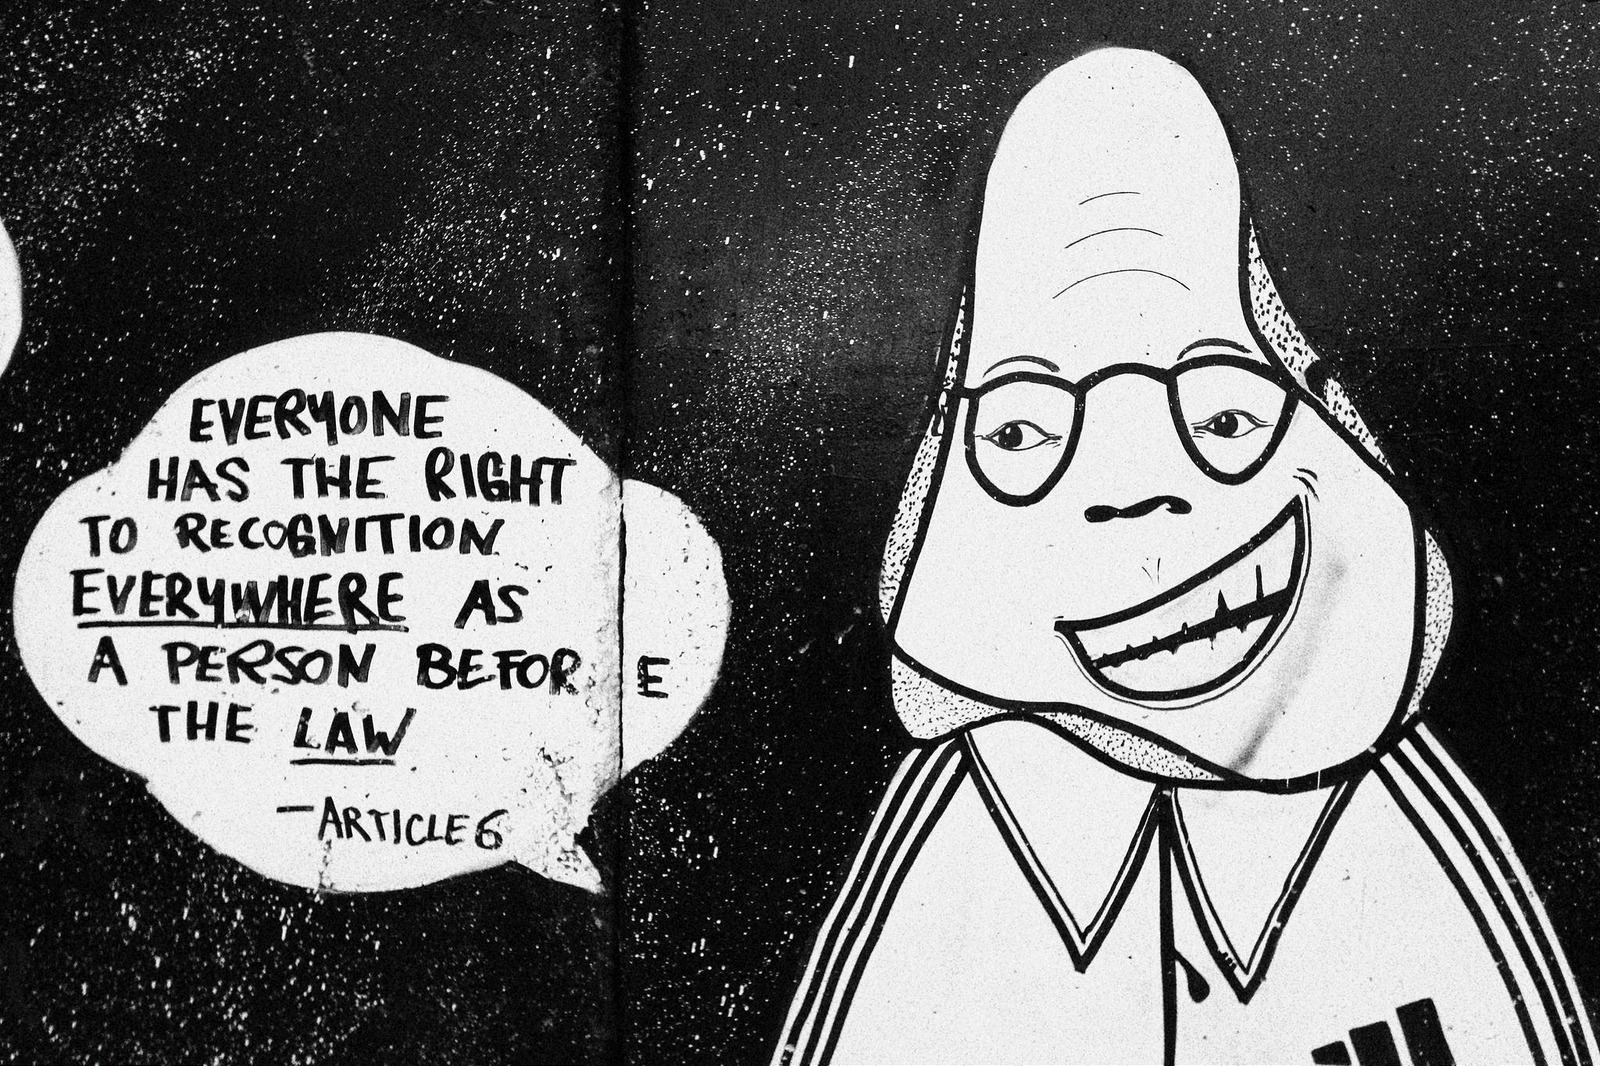 EVERYONE
HAS THE RIGHT
TO RECOGNITION
EVERYWHERE AS
A PERSON BEFORE
THE LAW
-ARTICLE 6